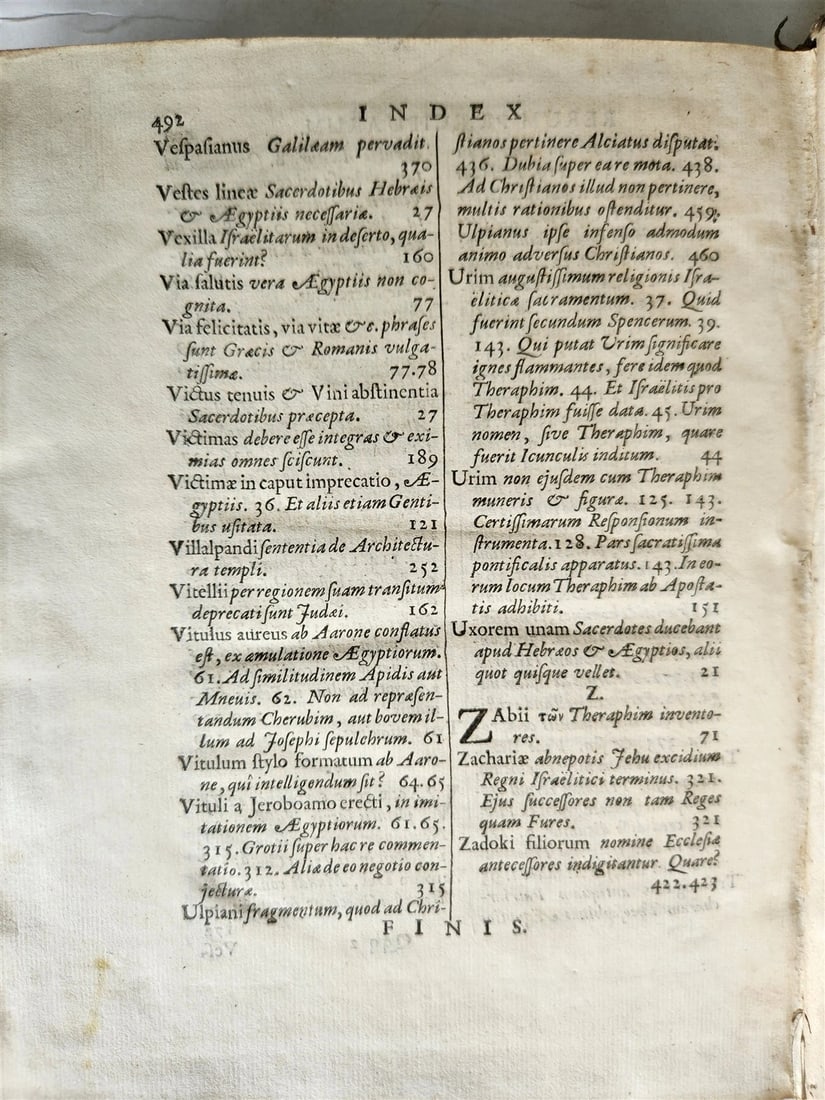 492
INDEX
Veſpaſianus Galilæam pervadit.
370
Veſtes lineæ Sacerdotibus Hebræis
& Ægyptiis neceſſariæ. 27
Vexilla Iſraëlitarum in deſerto, qua-
lia fuerint? 160
Via ſalutis vera Ægyptiis non co-
gnita. 77
Via felicitatis, via vitæ &c. phraſes
ſunt Græcis & Romanis vulga-
tiſſimæ. 77.78
Victus tenuis & Vini abſtinentia
Sacerdotibus præcepta. 27
Victimas debere eſſe integras & exi-
mias omnes ſciſcunt. 189
Victimæ in caput imprecatio, Æ-
gyptiis. 36. Et aliis etiam Genti-
bus uſitata. 121
Villalpandi ſententia de Architectu-
ra templi. 252
Vitellii per regionem ſuam tranſitum
deprecati ſunt Judæi. 162
Vitulus aureus ab Aarone conflatus
eſt, ex æmulatione Ægyptiorum.
61. Ad ſimilitudinem Apidis aut
Mneuis. 62. Non ad repræſen-
tandum Cherubim, aut bovem il-
lum ad Joſephi ſepulchrum. 61
Vitulum ſtylo formatum ab Aaro-
ne, quî intelligendum ſit? 64.65
Vituli a Jeroboamo erecti, in imi-
tationem Ægyptiorum. 61.65.
315. Grotii ſuper hac re commen-
tatio. 312. Aliæ de eo negotio con-
jecturæ. 315
Ulpiani fragmentum, quod ad Chri-
ſtianos pertinere Alciatus diſputat.
436. Dubia ſuper ea re mota. 438.
Ad Chriſtianos illud non pertinere,
multis rationibus oſtenditur. 459.
Ulpianus ipſe infenſo admodum
animo adverſus Chriſtianos. 460
Urim auguſtiſſimum religionis Iſra-
ëliticæ ſacramentum. 37. Quid
fuerint ſecundum Spencerum. 39.
143. Qui putat Urim ſignificare
ignes flammantes, fere idem quod
Theraphim. 44. Et Iſraëlitis pro
Theraphim fuiſſe data. 45. Urim
nomen, ſive Theraphim, quare
fuerit Icunculis inditum. 44
Urim non ejuſdem cum Theraphim
muneris & figuræ. 125. 143.
Certiſſimarum Reſponſionum in-
ſtrumenta. 128. Pars ſacratiſſima
pontificalis apparatus. 143. In eo-
rum locum Theraphim ab Apoſta-
tis adhibiti. 151
Uxorem unam Sacerdotes ducebant
apud Hebræos & Ægyptios, alii
quot quiſque vellet. 21
Z.
ZAbii τῶν Theraphim invento-
res. 71
Zachariæ abnepotis Jehu excidium
Regni Iſraëlitici terminus. 321.
Ejus ſucceſſores non tam Reges
quam Fures. 321
Zadoki filiorum nomine Eccleſiæ
anteceſſores indigitantur. Quare?
422.423
FINIS.